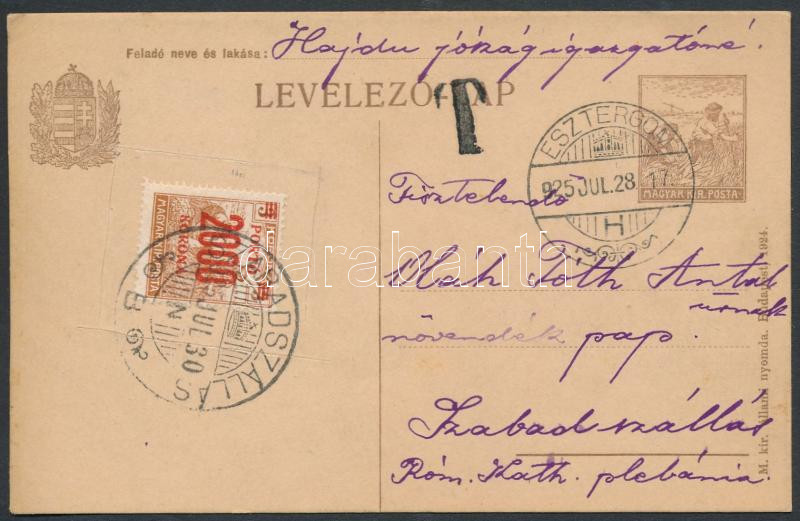 Feladó neve és lakása: Hajdu jószágigazgatóné.
LEVELEZŐ-LAP
T
ESZTERGOM
925 JUL. 28. 17
H
MAGYAR KIR. POSTA
Főtisztelendő
Oláh Tóth Antal
úrnak
növendék pap.
Szabadszállás
Róm. Kath. plébánia.
2000
KORONA
PORTO
MAGYAR KIR. POSTA
SZABADSZÁLLÁS
925 JUL 30
B
darabanth
M. kir. állami nyomda. Budapest, 1924.